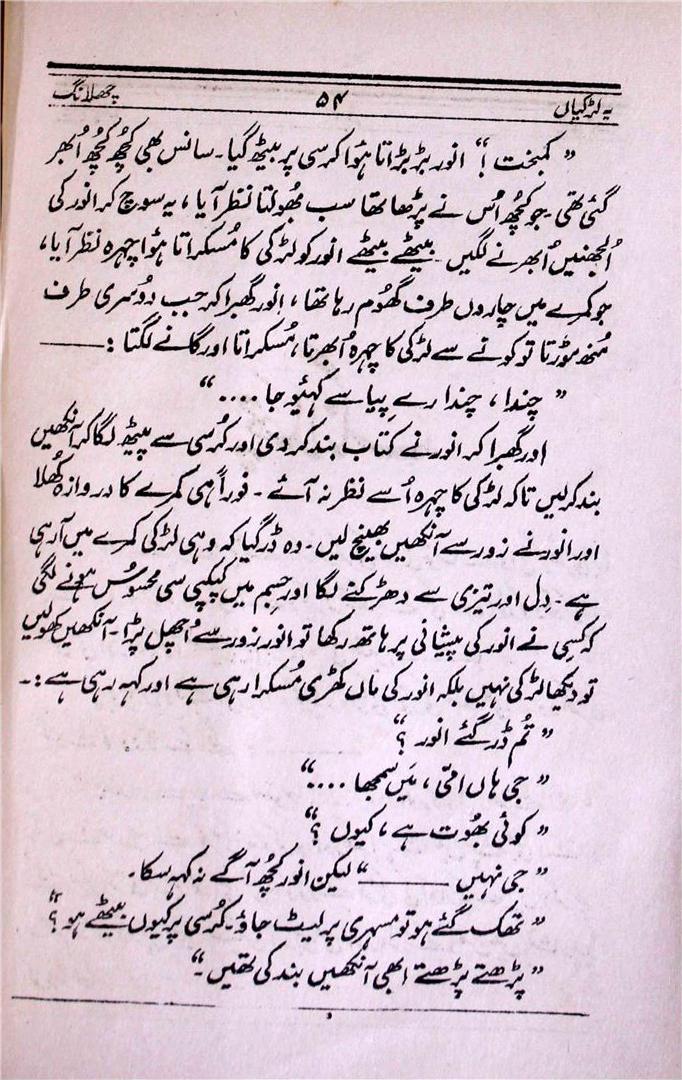 یہ لڑکیاں ۵۴ چھلانگ
”کمبخت !“ انور بڑبڑاتا ہوٴا کرسی پر بیٹھ گیا۔ سانس بھی کچُھ کچُھ اُبھر
گئی تھی۔ جو کچُھ اُس نے پڑھا تھا سب بھُولتا نظر آیا، یہ سوچ کر انور کی
اُلجھنیں اُبھرنے لگیں۔ بیٹھے بیٹھے انور کو لڑکی کا مُسکراتا ہوٴا چہرہ نظر آیا،
جو کمرے میں چاروں طرف گھوُم رہا تھا، انور گھبرا کر جب دوُسری طرف
مُنھ موڑتا تو کونے سے لڑکی کا چہرہ اُبھرتا، مُسکراتا اور گانے لگتا :ـــــــ
”چندا، چندا رے پِیا سے کہئیو جا ....“
اور گھبرا کر انور نے کتاب بند کر دی اور کُرسی سے پیٹھ لگا کر آنکھیں
بند کرلیں تاکہ لڑکی کا چہرہ اُسے نظر نہ آئے۔ فوراً ہی کمرے کا دروازہ کھُلا
اور انور نے زور سے آنکھیں بھینچ لیں۔ وہ ڈر گیا کہ وہی لڑکی کمرے میں آرہی
ہے۔ دِل اور تیزی سے دھڑکنے لگا اور جسِم میں کپکپی سی محسوُس ہونے لگی
کہ کسِی نے انور کی پیشانی پر ہاتھ رکھا تو انور زور سے اُچھل پڑا۔ آنکھیں کھولیں
تو دیکھا لڑکی نہیں بلکہ انور کی ماں کھڑی مُسکرا رہی ہے اور کہہ رہی ہے :۔
”تُم ڈر گئے انور ؟“
”جی ہاں امّی، مَیں سمجھا ....“
”کوئی بھوُت ہے، کیوں ؟“
”جی نہیں ـــــــ“ لیکن انور کچُھ آگے نہ کہہ سکا۔
”تھک گئے ہو تو مسہری پر لیٹ جاؤ۔ کُرسی پر کیوں بیٹھے ہو ؟“
”پڑھتے پڑھتے ابھی آنکھیں بند کی تھیں۔“